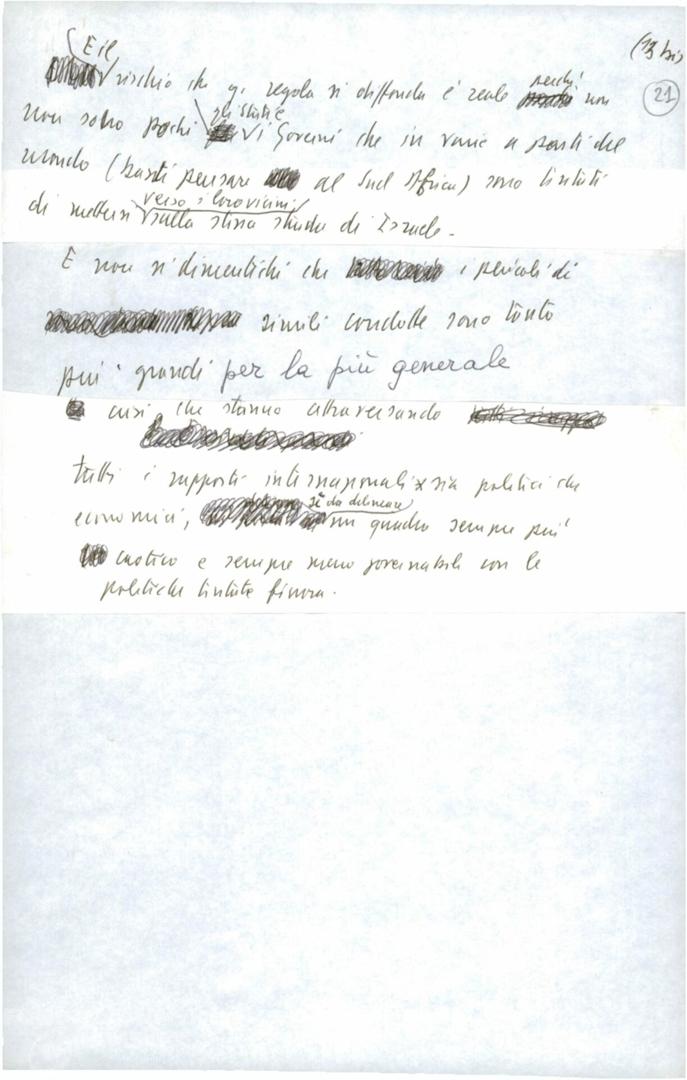 (13 bis)
21
E il
rischio che q. regola si diffonda è reale perché non
non sono pochi gli Stati e i Governi che in varie parti del
mondo (basti pensare al Sud Africa) sono tentati
di mettersi verso i loro vicini sulla stessa strada di Israele.
E non si dimentichi che i pericoli di
simili condotte sono tanto
più grandi per la più generale
crisi che stanno attraversando
tutti i rapporti internazionali sia politici che
economici, sì da delineare un quadro sempre più
caotico e sempre meno governabile con le
politiche tentate finora.